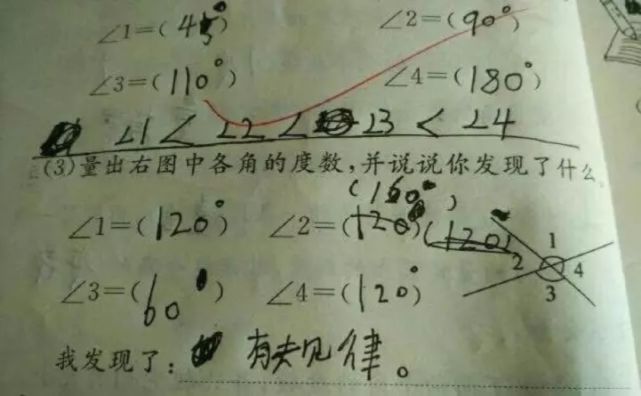 ∠1=(45°) ∠2=(90°)
∠3=(110°) ∠4=(180°)
∠1 < ∠2 < ∠3 < ∠4
(3)量出右图中各角的度数,并说说你发现了什么。
(160°)
∠1=(120°) ∠2=(120°)(120)
∠3=(60°) ∠4=(120°)
1
2 4
3
我发现了: 有夫见律。